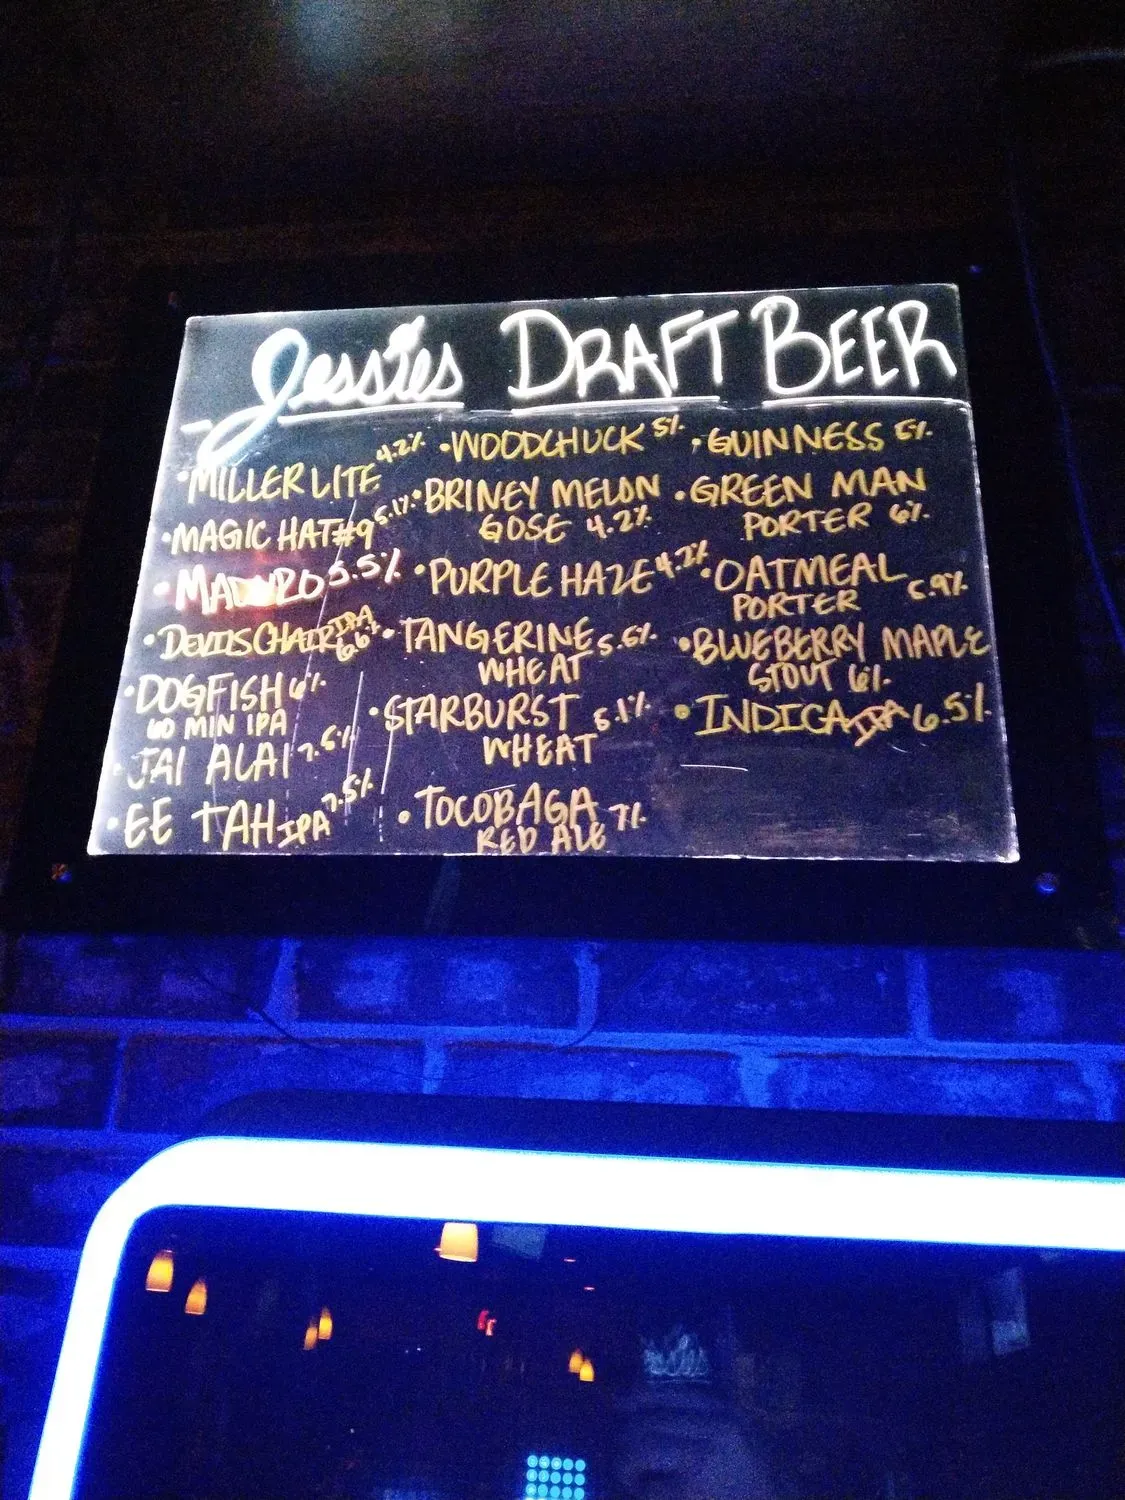 Jessies DRAFT BEER
• MILLER LITE 4.2%
• MAGIC HAT #9 5.1%
• MADURO 5.5%
• DEVILS CHAIR IPA 6.6%
• DOGFISH 6%
60 MIN IPA
• JAI ALAI 7.5%
• EE TAH IPA 7.5%
• WOODCHUCK 5%
• BRINEY MELON
GOSE 4.2%
• PURPLE HAZE 4.2%
• TANGERINE 5.5%
WHEAT
• STARBURST 5.1%
WHEAT
• TOCOBAGA 7%
RED ALE
• GUINNESS 5%
• GREEN MAN
PORTER 6%
• OATMEAL
PORTER 5.9%
• BLUEBERRY MAPLE
STOUT 6%
• INDICA IPA 6.5%